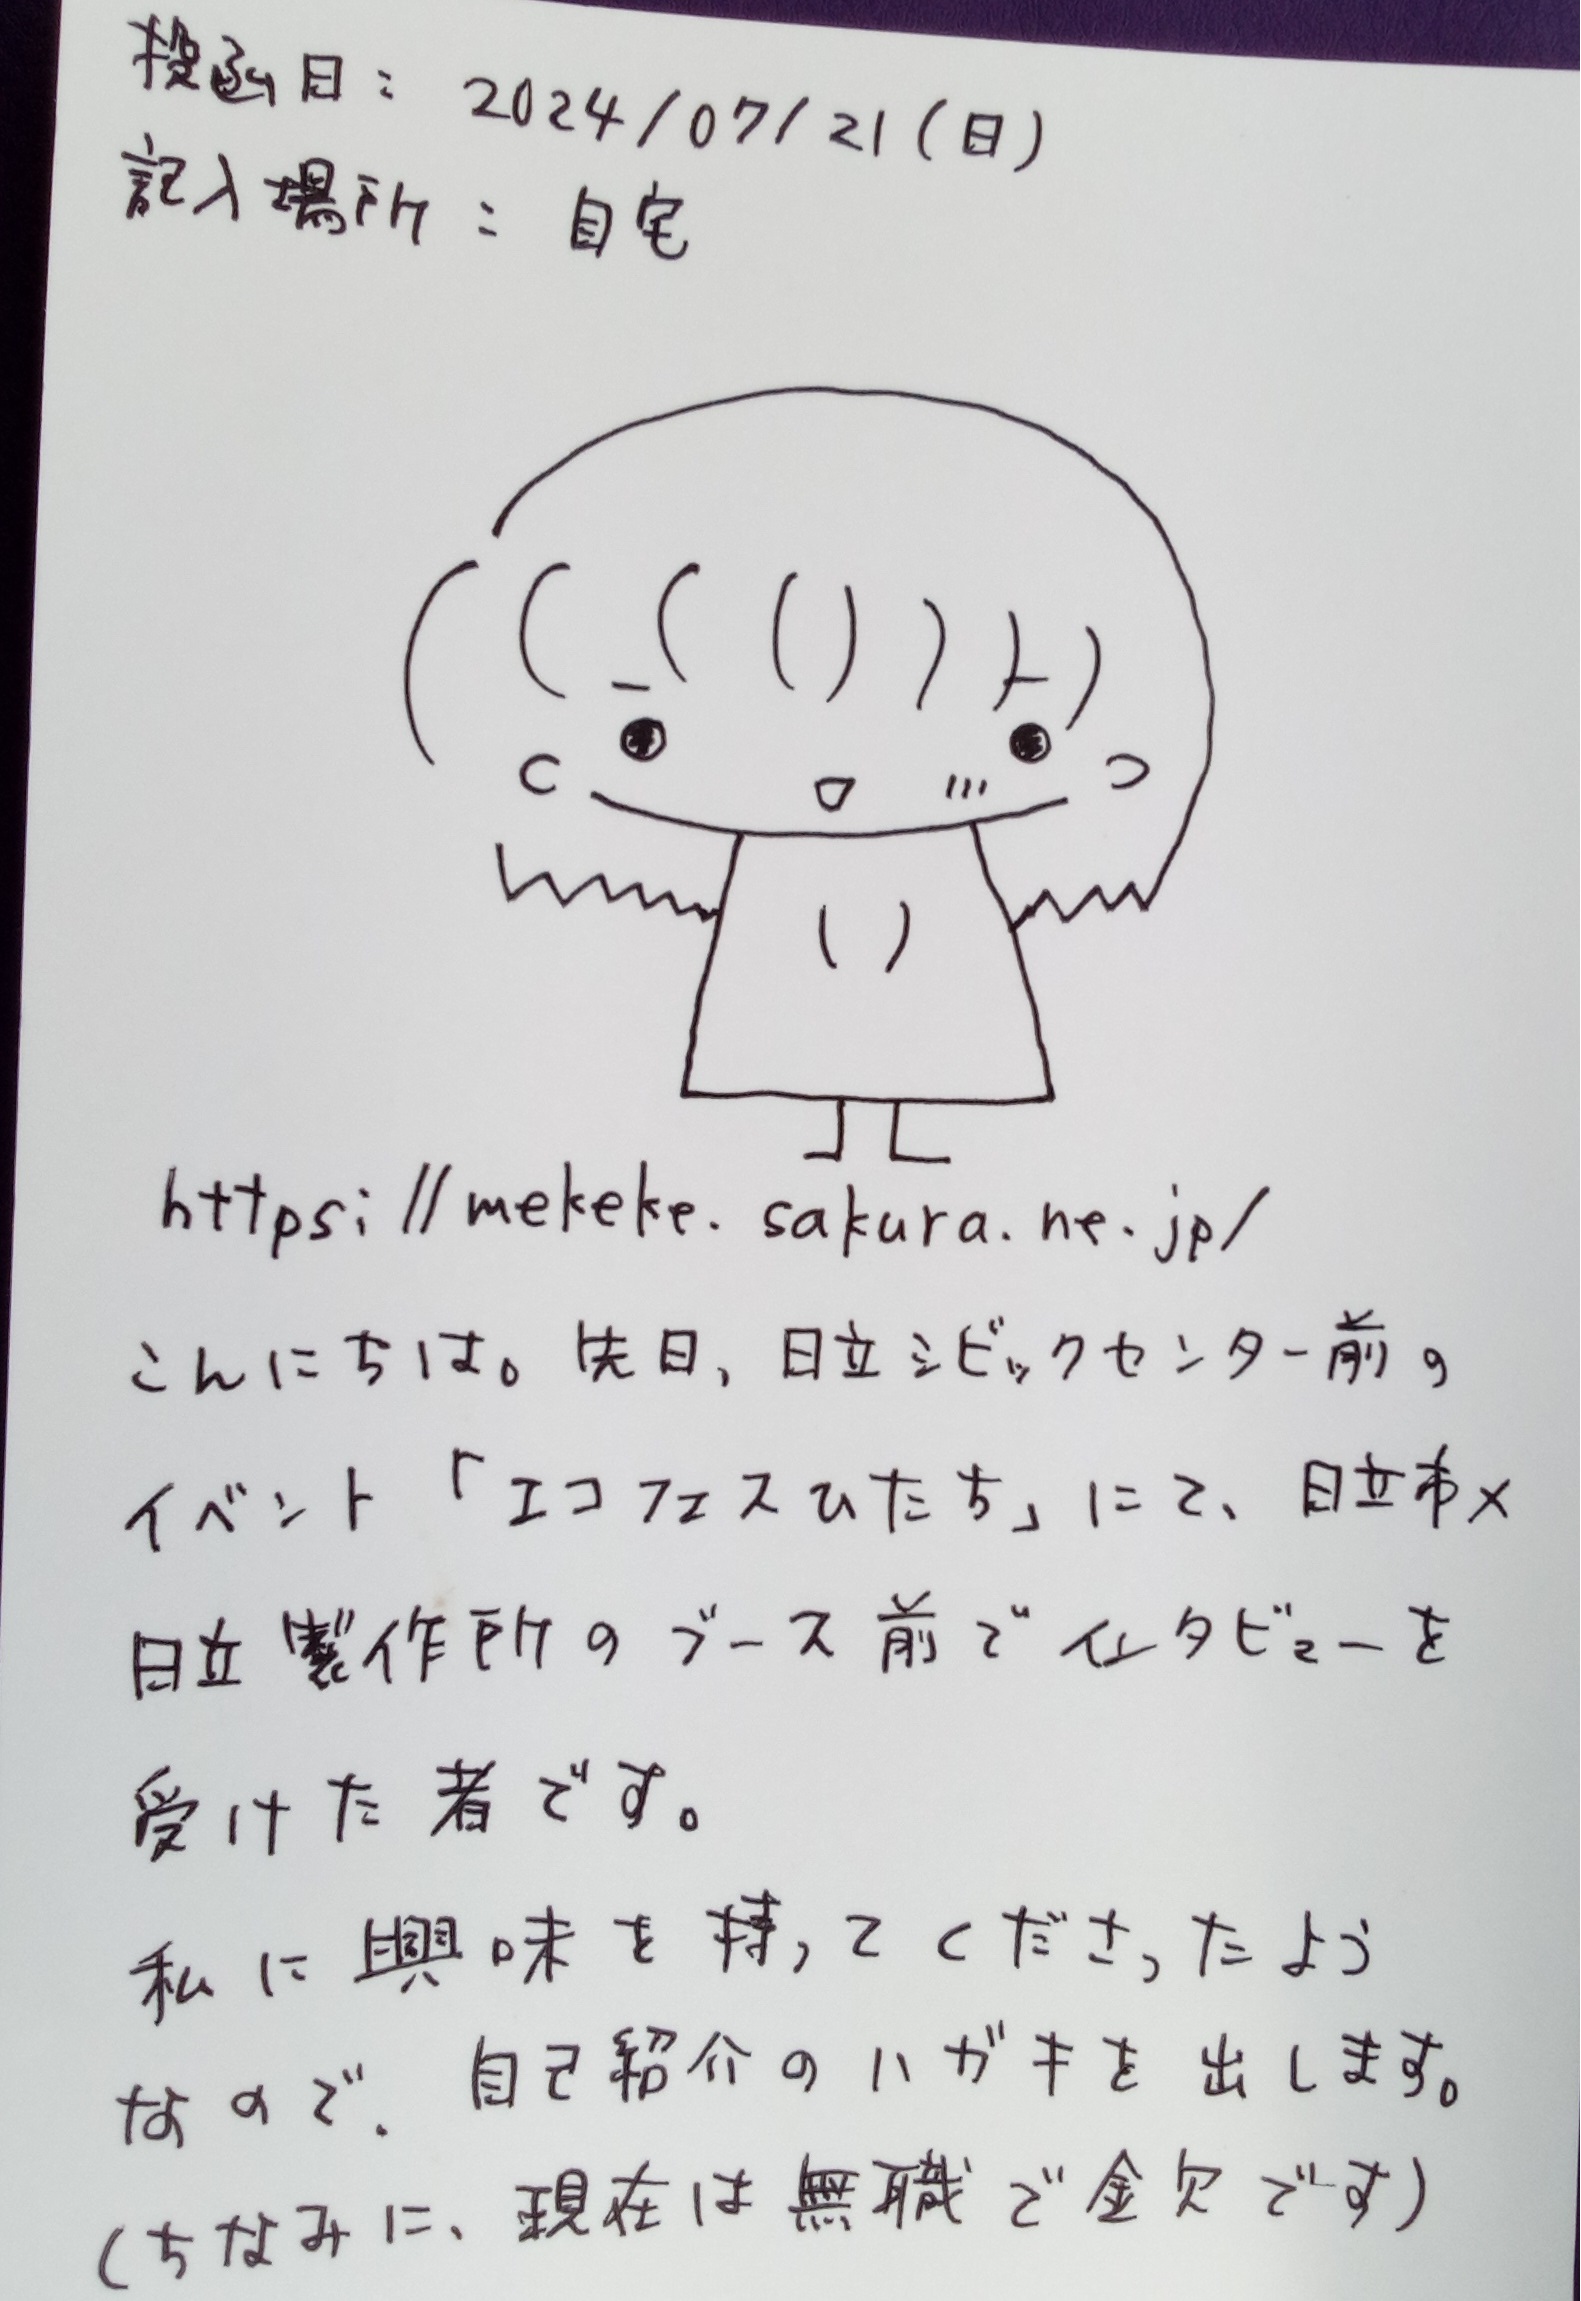 投函日：2024/07/21(日)
記入場所：自宅
https://mekeke.sakura.ne.jp/
こんにちは。先日、日立シビックセンター前の
イベント「エコフェスひたち」にて、日立市×
日立製作所のブース前でインタビューを
受けた者です。
私に興味を持ってくださったよう
なので、自己紹介のハガキを出します。
(ちなみに、現在は無職で金欠です)